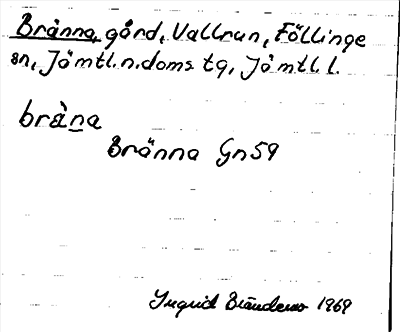 Bränna, gård, Vallrun, Föllinge
sn, Jämtl. n. doms. tg, Jämtl. l.
bràn̲a
Bränna Gn 59
Ingrid 1969